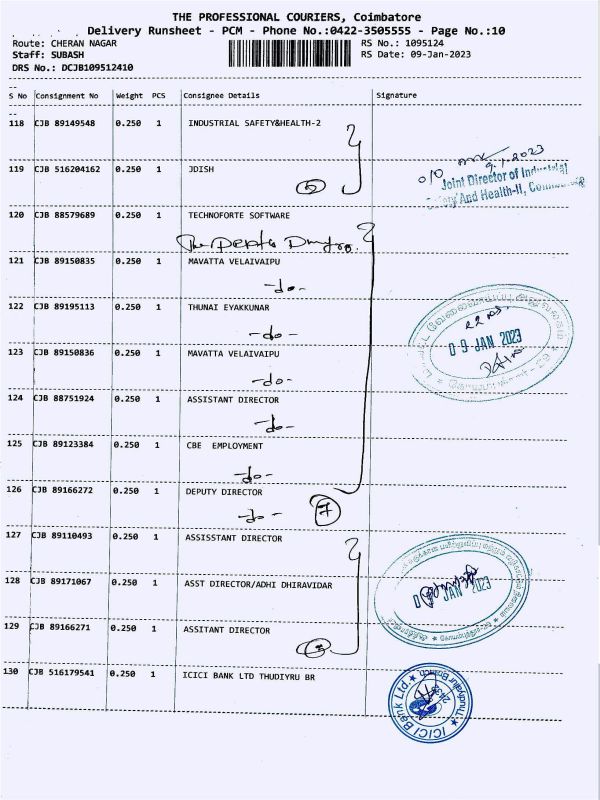 THE PROFESSIONAL COURIERS, Coimbatore
Delivery Runsheet - PCM - Phone No.:0422-3505555 - Page No.:10
Route: CHERAN NAGAR RS No.: 1095124
Staff: SUBASH RS Date: 09-Jan-2023
DRS No.: DCJB109512410
--
S No Consignment No Weight PCS Consignee Details Signature
--
118 CJB 89149548 0.250 1 INDUSTRIAL SAFETY&HEALTH-2
9.1.2023
119 CJB 516204162 0.250 1 JDISH
Joint Director of Industrial
Safety And Health-II, Coimbatore
120 CJB 88579689 0.250 1 TECHNOFORTE SOFTWARE
121 CJB 89150835 0.250 1 MAVATTA VELAIVAIPU
-do-
122 CJB 89195113 0.250 1 THUNAI EYAKKUNAR
-do-
09 JAN 2023
123 CJB 89150836 0.250 1 MAVATTA VELAIVAIPU
-do-
124 CJB 88751924 0.250 1 ASSISTANT DIRECTOR
-do-
125 CJB 89123384 0.250 1 CBE EMPLOYMENT
-do-
126 CJB 89166272 0.250 1 DEPUTY DIRECTOR
-do- 7
127 CJB 89110493 0.250 1 ASSISSTANT DIRECTOR
128 CJB 89171067 0.250 1 ASST DIRECTOR/ADHI DHIRAVIDAR
JAN 2023
129 CJB 89166271 0.250 1 ASSITANT DIRECTOR
3
130 CJB 516179541 0.250 1 ICICI BANK LTD THUDIYRU BR
ICICI Bank Ltd. Thudiyalur Branch